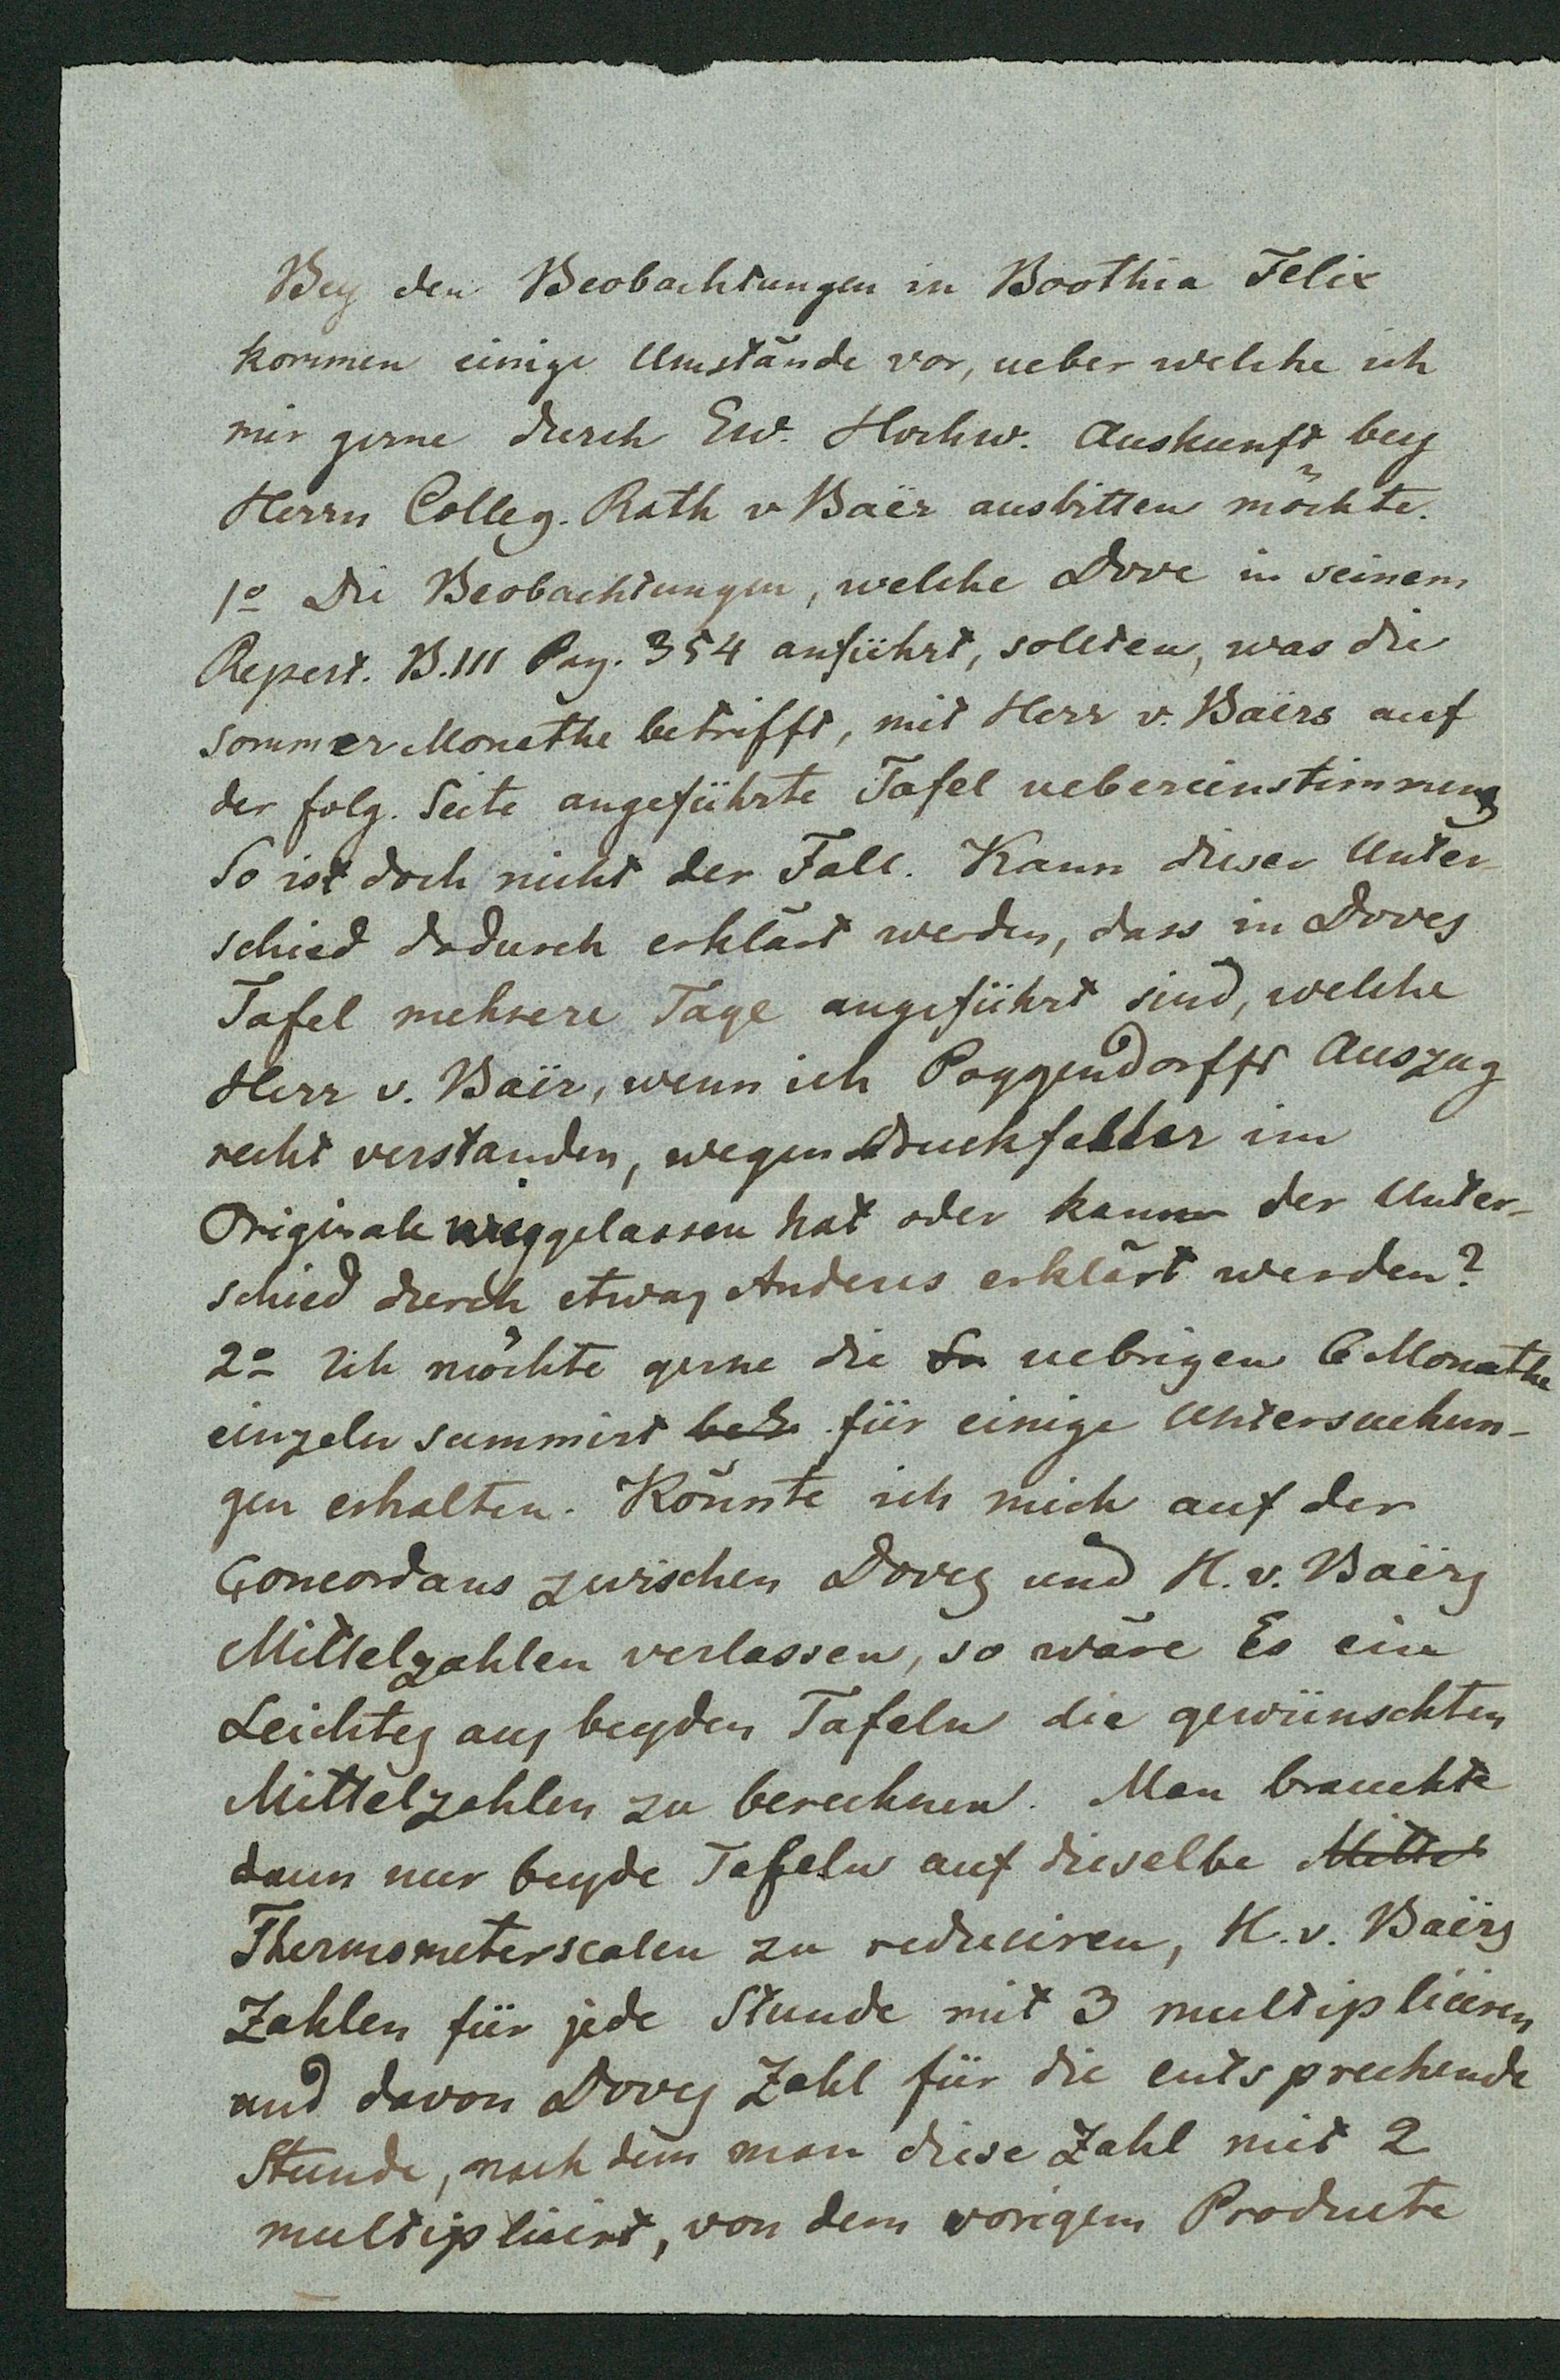 Bey den Beobachtungen in Boothia Felix
kommen einige Umstände vor, ueber welche ich
mir gerne durch Ew. Hochw. Auskunft bey
Herrn Colleg. Rath v Baër ausbitten möchte.
1o Die Beobachtungen, welche Dove in seinem
Repert. B.III Pag. 354 anführt, sollten, was die
Sommer Monathe betrifft, mit Herr v. Baërs auf
der folg. Seite angeführte Tafel uebereinstimmen
So ist doch nicht der Fall. Kann dieser Unter-
schied dadurch erklärt werden, dass in Doves
Tafel mehrere Tage angeführt sind, welche
Herr v. Baër, wenn ich Poggendorffs Auszug
recht verstanden, wegen Druckfehler im
Originale weggelassen hat oder kann der Unter-
schied durch etwas Anderes erklärt werden?
2o Ich möchte gerne die uebrigen 6 Monathe
einzeln summirt für einige Untersuchun-
gen erhalten. Könnte ich mich auf der
Concordans zwischen Doves und H. v. Baërs
Mittelzahlen verlassen, so wäre Es ein
Leichtes aus beyden Tafeln die gewünschten
Mittelzahlen zu berechnen. Man brauchte
dann nur beyde Tafeln auf dieselbe Mittel
Thermometerscalen zu reduciren, H. v. Baërs
Zahlen für jede Stunde mit 3 multipliciren
und davon Doves Zahl für die entsprechende
Stunde, nach dem man diese Zahl mit 2
multiplicirt, von dem vorigem Producte